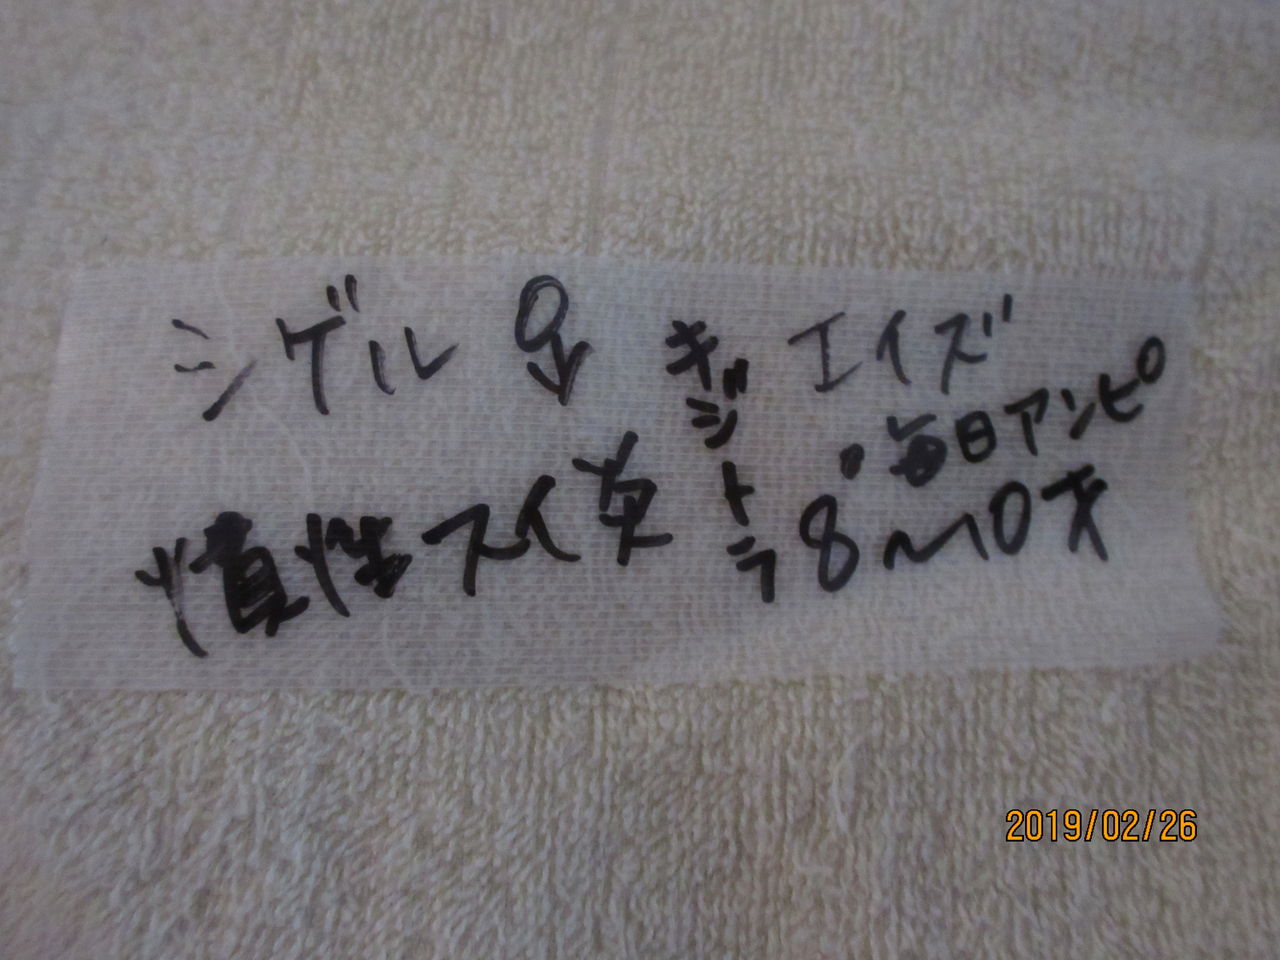 シゲル ♂ キジトラ エイズ
・毎日アンピ
慢性スイ炎 8〜10才
2019/02/26